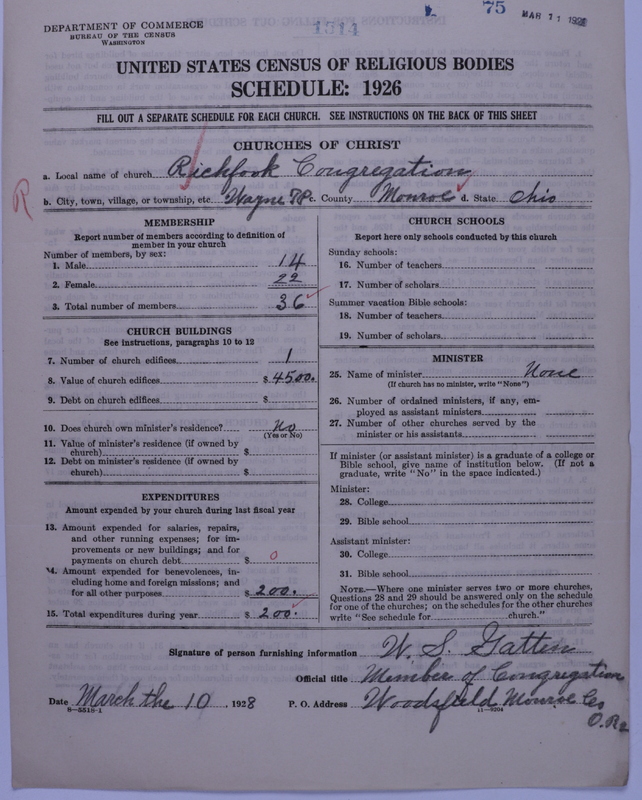 75
MAR 11 1928
DEPARTMENT OF COMMERCE
BUREAU OF THE CENSUS
WASHINGTON
1314
UNITED STATES CENSUS OF RELIGIOUS BODIES
SCHEDULE: 1926
FILL OUT A SEPARATE SCHEDULE FOR EACH CHURCH. SEE INSTRUCTIONS ON THE BACK OF THIS SHEET
CHURCHES OF CHRIST
a. Local name of church Richfork Congregation
R
b. City, town, village, or township, etc. Wayne TP c. County Monroe d. State Ohio
MEMBERSHIP
Report number of members according to definition of
member in your church
Number of members, by sex:
1. Male 14
2. Female 22
3. Total number of members 36
CHURCH BUILDINGS
See instructions, paragraphs 10 to 12
7. Number of church edifices 1
8. Value of church edifices $ 4500.
9. Debt on church edifices $
10. Does church own minister's residence? No
(Yes or No)
11. Value of minister's residence (if owned by
church) $
12. Debt on minister's residence (if owned by
church) $
EXPENDITURES
Amount expended by your church during last fiscal year
13. Amount expended for salaries, repairs,
and other running expenses; for im-
provements or new buildings; and for
payments on church debt $ 0
14. Amount expended for benevolences, in-
cluding home and foreign missions; and
for all other purposes $ 200.
15. Total expenditures during year $ 200.
CHURCH SCHOOLS
Report here only schools conducted by this church
Sunday schools:
16. Number of teachers
17. Number of scholars
Summer vacation Bible schools:
18. Number of teachers
19. Number of scholars
MINISTER
25. Name of minister None
(If church has no minister, write "None")
26. Number of ordained ministers, if any, em-
ployed as assistant ministers
27. Number of other churches served by the
minister or his assistants
If minister (or assistant minister) is a graduate of a college or
Bible school, give name of institution below. (If not a
graduate, write "No" in the space indicated.)
Minister:
28. College
29. Bible school
Assistant minister:
30. College
31. Bible school
NOTE.—Where one minister serves two or more churches,
Questions 28 and 29 should be answered only on the schedule
for one of the churches; on the schedules for the other churches
write "See schedule for church."
Signature of person furnishing information W. S. Gatten
Official title Member of Congregation
Date March the 10, 1928 P. O. Address Woodsfield Monroe Co
8—5518-1 11—9204
O. R2